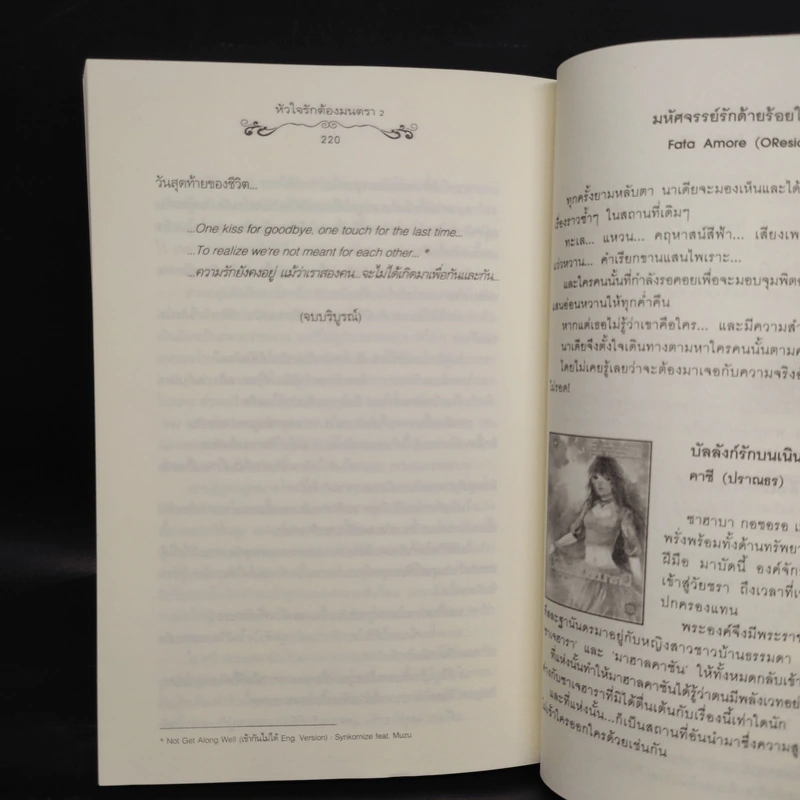 หัวใจรักต้องมนตรา 2
220
วันสุดท้ายของชีวิต...
...One kiss for goodbye, one touch for the last time...
...To realize we're not meant for each other... *
...ความรักยังคงอยู่ แม้ว่าเราสองคน...จะไม่ได้เกิดมาเพื่อกันและกัน...
(จบบริบูรณ์)
* Not Get Along Well (เข้ากันไม่ได้ Eng. Version) : Synkornize feat. Muzu
มหัศจรรย์รักด้ายร้อยใ
Fata Amore (OResic
ทุกครั้งยามหลับตา นาเดียจะมองเห็นและได้
เรื่องราวซ้ำๆ ในสถานที่เดิมๆ
ทะเล... แหวน... คฤหาสน์สีฟ้า... เสียงเพ
แว่วหวาน... คำเรียกขานแสนไพเราะ...
และใครคนนั้นที่กำลังรอคอยเพื่อจะมอบจุมพิต
แสนอ่อนหวานให้ทุกค่ำคืน
หากแต่เธอไม่รู้ว่าเขาคือใคร... และมีความสำ
นาเดียจึงตั้งใจเดินทางตามหาใครคนนั้นตาม
โดยไม่เคยรู้เลยว่าจะต้องมาเจอกับความจริง
ไม่รอด!
บัลลังก์รักบนเนิน
คาซี (ปราณธร)
ซาฮาบา กอซอรอ เ
พรั่งพร้อมทั้งด้านทรัพยา
ฝีมือ มาบัดนี้ องค์จัก
เข้าสู่วัยชรา ถึงเวลาที่
ปกครองแทน
พระองค์จึงมีพระรา
ฐานันดรมาอยู่กับหญิงสาวชาวบ้านธรรมดา
และ 'มาฮาลคาซัน' ให้ทั้งหมดกลับเข้า
ที่แห่งนั้นทำให้มาฮาลคาซันได้รู้ว่าตนมีพลังเวทอย่
กับซาเจฮาราที่มิได้ตื่นเต้นกับเรื่องนี้เท่าใดนัก
และที่แห่งนั้น...ก็เป็นสถานที่อันนำมาซึ่งความสู
ใครออกใครด้วยเช่นกัน